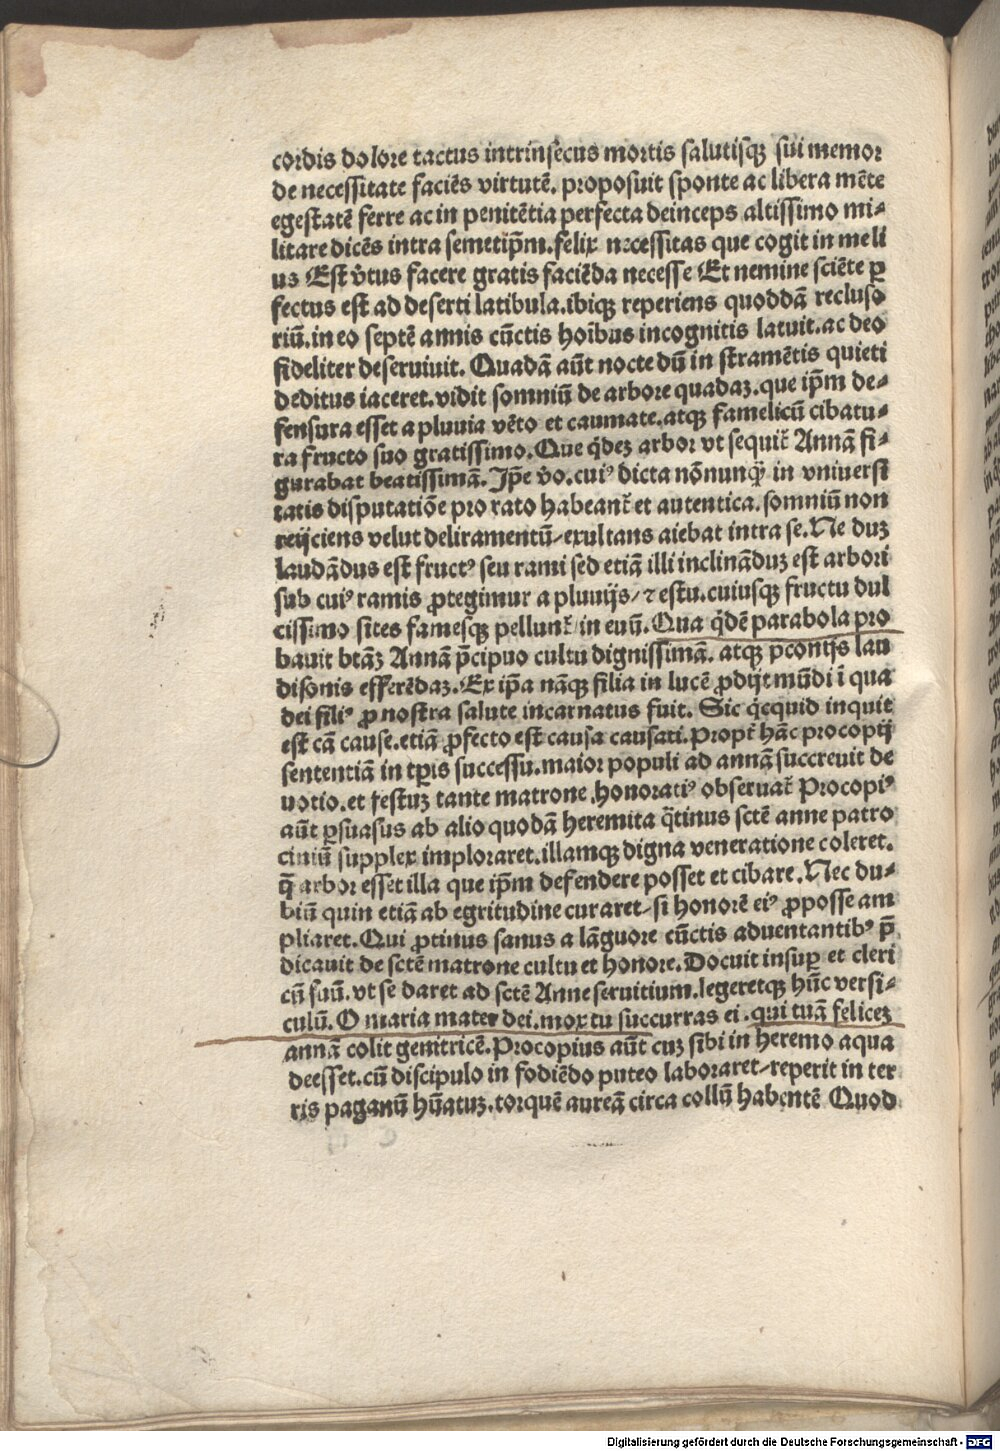 cordis dolore tactus intrinsecus mortis salutisqꝫ sui memor
de necessitate faciēs virtutē. proposuit sponte ac libera mēte
egestatē ferre ac in penitētia perfecta deinceps altissimo mi-
litare dicēs intra semetip̄m. felix necessitas que cogit in meli
us Est v̓tus facere gratis faciēda necesse Et nemine sciēte ꝑ
fectus est ad deserti latibula. ibiqꝫ reperiens quoddā recluso
riū. in eo septē annis cūctis hoībus incognitis latuit. ac deo
fideliter deseruiuit. Quadā aūt nocte dū in stramētis quieti
deditus iaceret. vidit somniū de arbore quadaꝫ. que ip̄m de-
fensura esset a pluuia vēto et caumate. atqꝫ famelicū cibatu-
ra fructo suo gratissimo. Que q̇deꝫ arbor vt sequit᷑ Annā fi-
gurabat beatissimā. Ip̄e v̓o. cuiꝰ dicta nōnunꝙ̄ in vniuersi
tatis disputatiōe pro rato habeant᷑ et autentica. somniū non
reijciens velut deliramentū-exultans aiebat intra se. Ne duꝫ
laudādus est fructꝰ seu rami sed etiā illi inclināduꝫ est arbori
sub cuiꝰ ramis ꝓtegimur a pluuijs/ ⁊ estu. cuiusqꝫ fructu dul
cissimo sites famesqꝫ pellunt᷑ in euū. Qua q̇dē parabola pro
bauit btāꝫ Annā p̄cipuo cultu dignissimā. atqꝫ p̄conijs lau
disonis efferēdaꝫ. Ex ip̄a nāqꝫ filia in lucē ꝓdijt mūdi ī qua
dei filiꝰ ꝓ nostra salute incarnatus fuit. Sic q̇cquid inquit
est cā cause. etiā ꝓfecto est causa causati. Propt᷑ hāc procopij
sententiā in tp̄is successu. maior populi ad annā succreuit de
uotio. et festuꝫ tante matrone. honoratiꝰ obseruat᷑ Procopiꝰ
aūt ꝑsuasus ab alio quodā heremita q̄tinus sctē anne patro
ciniū supplex imploraret. illamqꝫ digna veneratione coleret.
q̄ arbor esset illa que ip̄m defendere posset et cibare. Nec du-
biū quin etiā ab egritudine curaret-si honorē eiꝰ ꝓposse am
pliaret. Qui ꝓtinus sanus a lāguore cūctis aduentantibꝰ p̄
dicauit de sctē matrone cultu et honore. Docuit insuꝑ et cleri
cū suū. vt se daret ad sctē Anne seruitium. legeretqꝫ hūc versi-
culū. O maria mater dei. mox tu succurras ei. qui tuā feliceꝫ
annā colit genitricē. Procopius aūt cuꝫ sibi in heremo aqua
deesset. cū discipulo in fodiēdo puteo laboraret-reperit in ter
ris paganū hūatuꝫ. torquē aureā circa collū habentē Quod
Digitalisierung gefördert durch die Deutsche Forschungsgemeinschaft - DFG